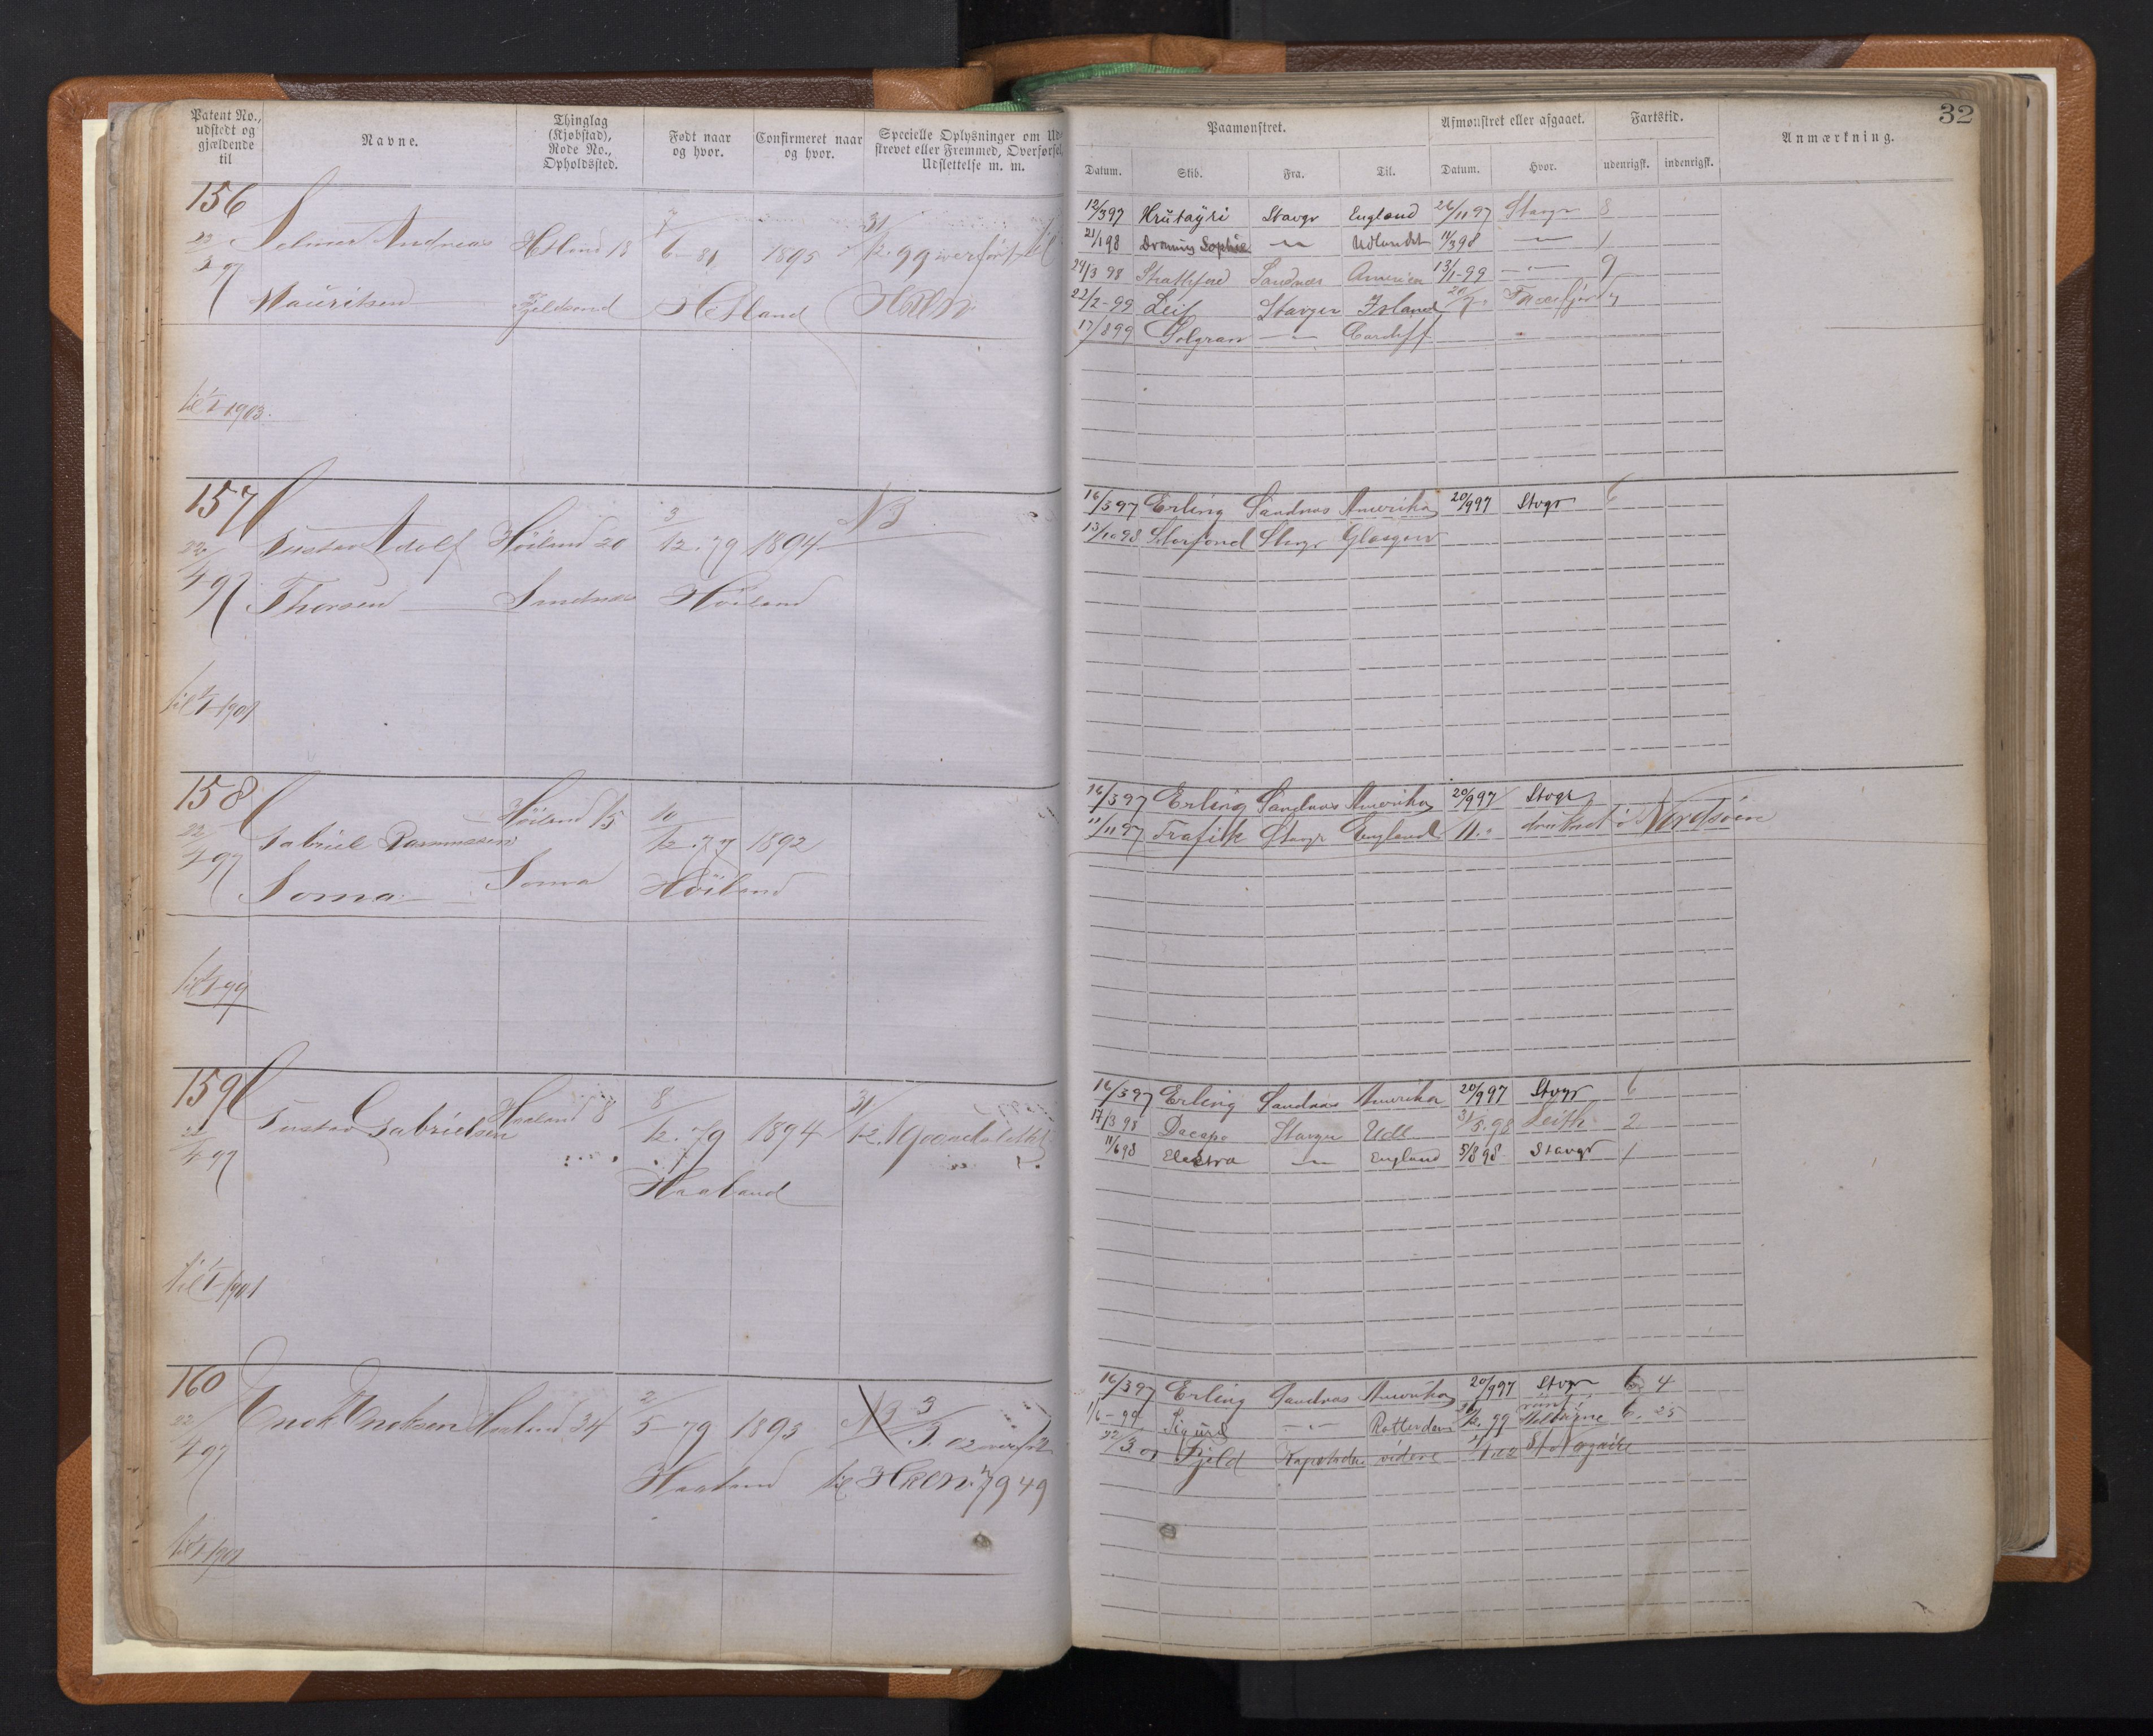 Patent No., udstedt og gjældende til
Navne.
Thinglag (Kjøbstad), Rode No., Opholdssted.
Født naar og hvor.
Confirmeret naar og hvor.
Specielle Oplysninger om Ud-
strevet eller Fremmed, Overførsel,
Udslettelse m. m.
Paamønstret.
Afmønstret eller afgaaet.
Fartstid.
Anmærkning.
32
Datum. Skib. Fra. Til. Datum. Hvor. udenrigsk. indenrigsk.
156
Selmer Andreas Hetland 18 7/6-81 1895 31/12.99 overført til
Mauritsen Hetland
12/3 97 Hrutayri Stavgr England 26/11 97 Stavgr 8
21/1 98 Dronning Sophie — Udlandet 11/3 98 — 1
24/3 98 Sandnæs America 13/1-99 —"— 9
22/2-99 Leif Stavger Island
17/8 99 Solgran —"— Cardiff
til 1/1-1903.
157
Gustav Adolf Høiland 20 3/12.79 1894 N3
22/4 97 Thorsen Sandnæs Høiland
16/3 97 Erling Sandnæs Amerika 20/9 97 Stvgr 6
13/10 98 Storfond Stavgr Glasgow
til 1/1-1901
158
Gabriel Rasmussen Høiland 15 10/12.77 1892
22/4 97 Soma Soma Høiland
16/3 97 Erling Sandnæs Amerika 20/9 97 Stvgr
11/11 97 Trafik Stavgr England 11." druknet i Nordsøen
til 1/1-99
159
Gustav Gabrielsen Haaland 8 8/12.79 1894 31/12.
22/4 97
Haaland
16/3 97 Erling Sandnæs Amerika 20/9 97 Stvgr 6
17/3 98 Dacapo Stavger Udl 31/5.98 Leith 2
11/6 98 Elektra — England 5/8 98 Stavgr 1
til 1/1-1901
160
Enok Enoksen Haaland 34 2/5-79 1893 N3 3/5.02 overført
22/4 97 Haaland til 7949
16/3 97 Erling Sandnæs Amerika 20/9 97 Stvgr 6 4
1/6-99 Sigurd —"— Rotterdam 99 Melbourne 6. 25
22/3 01 Fjeld Kapstaden videre St Nazaire
til 1/1-1901